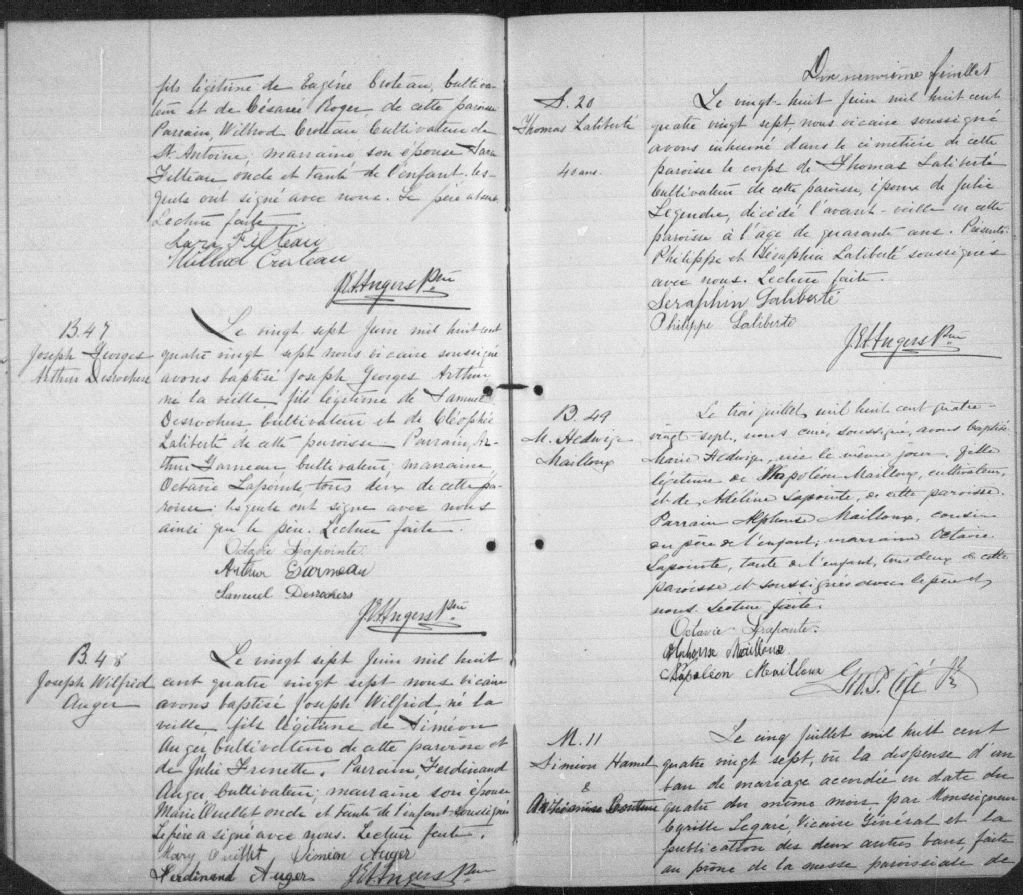 fils légitime de Eugène Croteau, Cultiva-
teur et de Césarie Roger de cette paroisse
Parrain, Wilbrod Croteau Cultivateur de
St Antoine; marraine, son épouse Sara
Filteau oncle et tante de l'enfant. les-
quels ont signé avec nous. Le père absent
Lecture faite.
Sara Filteau
Wilbrod Croteau
J.E.H Angers Ptre
B. 47
Joseph Georges
Arthur Desrochers
Le vingt sept Juin mil huit cent
quatre vingt sept nous vicaire soussigné
avons baptisé Joseph Georges Arthur
né la veille fils légitime de Samuel
Desrochers Cultivateur et de Cléophée
Laliberté de cette paroisse Parrain, Ar-
thur Garneau, Cultivateur; marraine,
Octavie Lapointe, tous deux de cette pa-
roisse: lesquels ont signé avec nous
ainsi que le père. Lecture faite.
Octavie Lapointe.
Arthur Garneau
Samuel Desrochers
J.E.H Angers Ptre
B. 48
Joseph Wilfrid
Auger
Le vingt sept Juin mil huit
cent quatre vingt sept nous vicaire
avons baptisé Joseph Wilfrid né la
veille, fils légitime de Siméon
Auger Cultivateur de cette paroisse et
de Julie Frenette. Parrain, Ferdinand
Auger Cultivateur; marraine son épouse
Marie Ouellet oncle et tante de l'enfant soussignés
Le père a signé avec nous. Lecture faite.
Mary Ouillet Siméon Auger
Ferdinand Auger J.E.H Angers Ptre
Dix neuvième feuillet
S. 20
Thomas Laliberté
40 ans.
Le vingt-huit Juin mil huit cent
quatre vingt sept, nous vicaire soussigné
avons inhumé dans le cimetière de cette
paroisse le corps de Thomas Laliberté
Cultivateur de cette paroisse, époux de Julie
Legendre, décédé l'avant-veille en cette
paroisse à l'âge de quarante ans. Présents
Philippe et Séraphin Laliberté soussignés
avec nous. Lecture faite.
Seraphin Laliberté
Philippe Laliberté
J.E.H Angers Ptre
B. 49
M. Hedwige
Mailloux
Le trois juillet, mil huit cent quatre-
vingt-sept, nous curé, soussigné, avons baptisé
Marie Hedwige, née le même jour, fille
légitime de Napoléon Mailloux, cultivateur,
et de Adéline Lapointe, de cette paroisse.
Parrain Alphonse Mailloux, cousin
du père de l'enfant; marraine Octavie
Lapointe, tante de l'enfant, tous deux de cette
paroisse et soussignés avec le père et
nous. Lecture faite.
Octavie Lapointe.
Alphonse Mailloux
Napoléon Mailloux
Geo. P. Côté Ptre
M. 11
Siméon Hamel
&
Le cinq Juillet mil huit cent
quatre vingt sept, vu la dispense d'un
ban de mariage accordée en date du
quatre du même mois par Monseigneur
Cyrille Legaré, Vicaire Général et la
publication des deux autres bans, faite
au prône de la messe paroissiale de